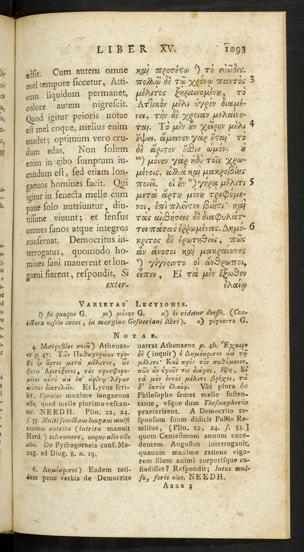 LIBER XV. 1093
adsit. Cum autem omne
mel tempore siccetur, Atti-
cum liquidum permanet,
colore autem nigrescit.
Quod igitur peioris notae
est mel coque, melius enim
euadet; optimum vero cru-
dum edas. Non solum
enim in cibo sumptum iu-
cundum est, sed etiam lon-
gaeuos homines facit. Qui
igitur in senecta melle cum
pane solo nutriuntur, diu-
tissime viuunt; et sensus
omnes sanos atque integros
conseruat. Democritus in-
terrogatus, quomodo ho-
mines sani manerent et lon-
gaeui fierent, respondit, Si
exter-
καὶ προσέτω ) τὸ εὐῶδες.
πολλῷ δὲ τῷ χρόνῳ παντὸς 3
μέλιτος ξηραινομένου, τὸ
Ἀτλικὸν μέλι ὑγρὸν διαμέ-
νει, τὴν δὲ χρείαν μελαίνε-
ται. Τὸ μὲν ὖν χεῖρον μέλι 4
ἕψει, ἄμεινον γὰρ ἔσαι τὸ
δὲ ἄριστον ἔσθιε ὠμόν. ὐ
μόνον γὰρ ἡδὺ τοῖς χρω-
μένοις, ἀλλὰ καὶ μακροβίυς
ποιεῖ. οἱ ἐν γήρα μέλιτι 5
μετὰ ἄρτυ μόνυ τρεφόμε-
νοι, ἐπὶ πλεῖστον βιῦσι· καὶ
τὰς αἰσθήσεις δὲ διαφυλάτ-
τει πάσας ἐῤῥωμένας. Δημό- 6
κριτος δὲ ἐρωτηθεὶς, πῶς
ἂν ἄνοσοι καὶ μακραίωνες
γίγνοιντο οἱ ἄνθρωποι,
εἶπεν, Εἰ τὰ μὲν ἔξωθεν
ἐλαίῳ
VARIETAS LECTIONIS.
G. m) μόνον G. n) ὖν videtur deesse. (Con-
in margine Gesneriani libri). o) γίγνοντο G.
NOTAE.
4. Athenae-
us p. 47. Τῶν Πυθαγορείων τρο-
φὴ ἦν ἄρτος μετὰ μέλιτος, ὥς
φησιν Ἀριστόξενος, τὰς προσφερο-
μένυς αὐτὰ ἀεὶ ἐπ' ἀρίστῳ λέγων
ἀνόσυς διατελεῖν. Et Lycus scri-
bit, Cyrnios maxime longaeuos
esse, quod melle plurimo vescan-
tur. NEEDH. Plin. 22, 24,
s. 53. Multi senectam longam mulsi
tantum nutritu (intrita manuit
Hard.) tolerauere, neque alio vllo
cibo. De Pythagoraeis conf. Me-
nag. ad Diog. 8. n. 19.
6. Δημόκριτος) Eadem toti-
dem pene verbis de Democrito
narrat Athenaeus p. 46. Ἔχαιρε
δὲ (inquit) ὁ Δημόκριτος ἀεὶ τῷ
μέλιτι· Καὶ πρὸς τὸν πυθόμενον,
πῶς ἂν ὑγιῶς τις διάγοι, ἔφη, Εἰ
τὰ μὲν ἐντὸς μέλιτι βρέχοι, τὰ
δ' ἐκτὸς ἐλαίῳ. Vbi plura de
Philosopho semet melle susten-
tante, vsque dum Thesmophoria
praeterirent. A Democrito re-
sponsum suum didicit Pollio Ro-
milius, [Plin. 22, 24. s. 53.]
quem Centesimum annum exce-
dentem Augustus interrogauit,
quanam maxime ratione vigo-
rem illum animi corporisque cu-
stodisset? Respondit; Intus mul-
so, foris oleo. NEEDH.
Aaaa 3